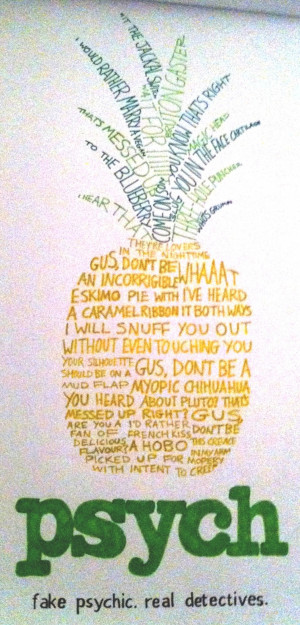 I WOULD RATHER MARRY
THAT'S MESSED
TO THE BLUEBERRY
I HEAR THA
WAIT FOR IIIIII
COME ON SON
YOU KNOW THAT'S RIGHT
MAGIC HEAD
YOU IN THE FACE
THREE HOLE PUNCHER
THEY'RE LOVERS
IN THE NIGHTTIME
GUS, DON'T BE WHAAAT
AN INCORRIGIBLE
ESKIMO PIE WITH I'VE HEARD
A CARAMEL RIBBON IT BOTH WAYS
I WILL SNUFF YOU OUT
WITHOUT EVEN TOUCHING YOU
YOUR SILHOUETTE GUS, DON'T BE A
SHOULD BE ON A
MUD FLAP MYOPIC CHIHUAHUA
YOU HEARD ABOUT PLUTO? THAT'S
MESSED UP RIGHT? GUS,
ARE YOU A I'D RATHER DON'T BE
FAN OF FRENCH KISS THIS CREVACE
DELICIOUS A HOBO IN MY ARM
FLAVOUR?
PICKED UP FOR MOPERY
WITH INTENT TO CREEP
psych
fake psychic. real detectives.